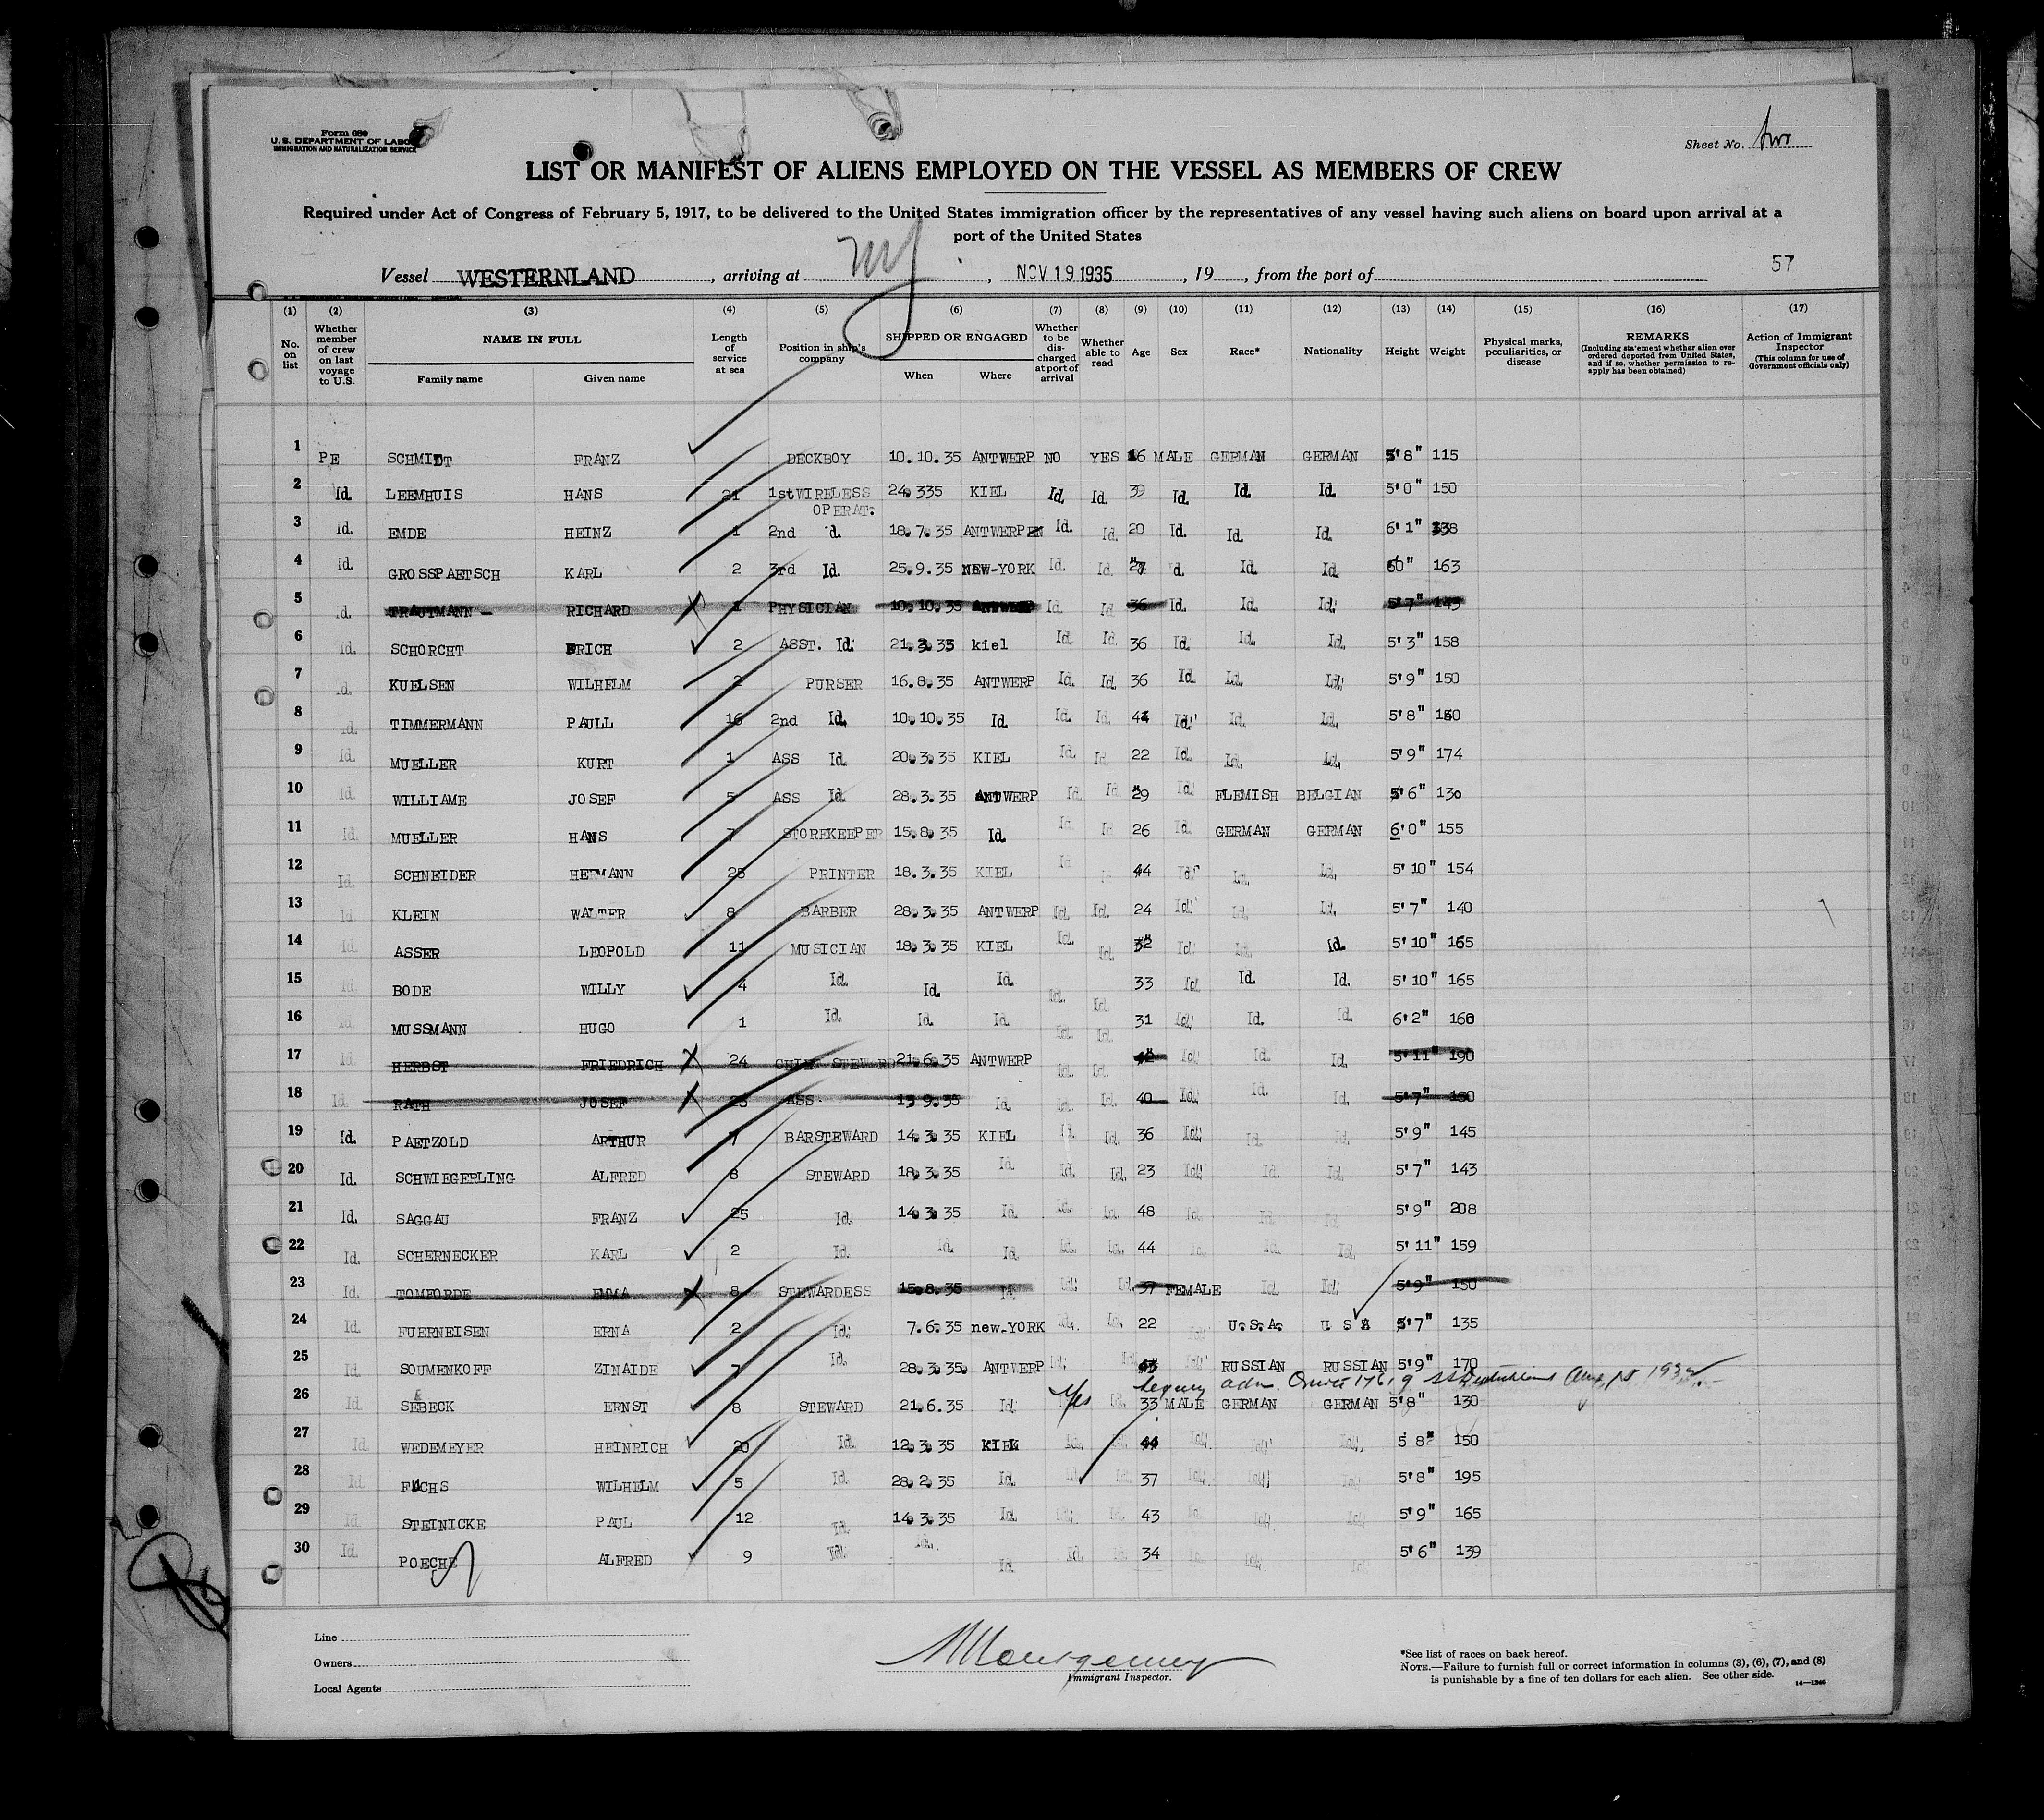 Form 680
U. S. DEPARTMENT OF LABOR
IMMIGRATION AND NATURALIZATION SERVICE
Sheet No. two
LIST OR MANIFEST OF ALIENS EMPLOYED ON THE VESSEL AS MEMBERS OF CREW
Required under Act of Congress of February 5, 1917, to be delivered to the United States immigration officer by the representatives of any vessel having such aliens on board upon arrival at a
port of the United States
57
Vessel WESTERNLAND , arriving at NY , NOV 19 1935 , 19 , from the port of
(1) (2) (3) (4) (5) (6) (7) (8) (9) (10) (11) (12) (13) (14) (15) (16) (17)
No. on list Whether member of crew on last voyage to U.S. NAME IN FULL Family name Given name Length of service at sea Position in ship's company SHIPPED OR ENGAGED When Where Whether to be discharged at port of arrival Whether able to read Age Sex Race* Nationality Height Weight Physical marks, peculiarities, or disease REMARKS (Including statement whether alien ever ordered deported from United States, and if so, whether permission to reapply has been obtained) Action of Immigrant Inspector (This column for use of Government officials only)
1 PE SCHMIDT FRANZ DECKBOY 10.10.35 ANTWERP NO YES 16 MALE GERMAN GERMAN 5'8" 115
2 Id. LEEMHUIS HANS 21 1st WIRELESS OPERAT. 24.335 KIEL Id. Id. 39 Id. Id. Id. 5'0" 150
3 Id. EMDE HEINZ 1 2nd d. 18.7.35 ANTWERPEN Id. Id. 20 Id. Id. Id. 6'1" 138
4 Id. GROSSPAETSCH KARL 2 3rd Id. 25.9.35 NEW-YORK Id. Id. 27 d. Id. Id. 163
5 Id. TRAUTMANN RICHARD 1 PHYSICIAN 10.10.35 ANTWERP Id. Id. 36 Id. Id. Id. 5'7" 145
6 Id. SCHORCHT ERICH 2 ASST. Id. 21.3.35 kiel Id. Id. 36 Id. Id. Id. 5'3" 158
7 d. KUELSEN WILHELM 2 PURSER 16.8.35 ANTWERP Id. Id. 36 Id. Id. Id. 5'9" 150
8 Id. TIMMERMANN PAULL 16 2nd Id. 10.10.35 Id. Id. Id. 44 Id. Id. Id. 5'8" 160
9 Id. MUELLER KURT 1 ASS Id. 20.3.35 KIEL Id. Id. 22 Id. Id. Id. 5'9" 174
10 Id. WILLIAME JOSEF 5 ASS Id. 28.3.35 ANTWERP Id. Id. 29 Id. FLEMISH BELGIAN 5'6" 130
11 Id. MUELLER HANS 7 STOREKEEPER 15.8.35 Id. Id. Id. 26 Id. GERMAN GERMAN 6'0" 155
12 Id. SCHNEIDER HERMANN 25 PRINTER 18.3.35 KIEL Id. Id. 44 Id. Id. Id. 5'10" 154
13 Id. KLEIN WALTER 8 BARBER 28.3.35 ANTWERP Id. Id. 24 Id. Id. Id. 5'7" 140
14 Id. ASSER LEOPOLD 11 MUSICIAN 18.3.35 KIEL Id. Id. 32 Id. Id. Id. 5'10" 165
15 Id. BODE WILLY 4 Id. Id. Id. Id. Id. 33 Id. Id. Id. 5'10" 165
16 Id. MUSSMANN HUGO 1 Id. Id. Id. Id. Id. 31 Id. Id. Id. 6'2" 160
17 Id. HERBST FRIEDRICH 24 CHIEF STEWARD 21.6.35 ANTWERP Id. Id. 42 Id. Id. Id. 5'11" 190
18 Id. RATH JOSEF 25 ASS 13.9.35 Id. Id. Id. 40 Id. Id. Id. 5'7" 150
19 Id. PAETZOLD ARTHUR 7 BARSTEWARD 14.3.35 KIEL Id. Id. 36 Id. Id. Id. 5'9" 145
20 Id. SCHWIEGERLING ALFRED 8 STEWARD 18.3.35 Id. Id. Id. 23 Id. Id. Id. 5'7" 143
21 Id. SAGGAU FRANZ 25 Id. 14.3.35 Id. Id. Id. 48 Id. Id. Id. 5'9" 208
22 Id. SCHERNECKER KARL 2 Id. Id. Id. Id. Id. 44 Id. Id. Id. 5'11" 159
23 Id. TOMFORDE EMMA 8 STEWARDESS 15.8.35 Id. Id. Id. 37 FEMALE Id. Id. 5'9" 150
24 Id. FUERNEISEN ERNA 2 Id. 7.6.35 new-YORK Id. Id. 22 Id. U.S.A. U S A 5'7" 135
25 Id. SOUMENKOFF ZINAIDE 7 Id. 28.3.35. ANTWERP Id. Id. Id. RUSSIAN RUSSIAN 5'9" 170
adm. 1932
26 Id. SEBECK ERNST 8 STEWARD 21.6.35 Id. Yes Id. 33 MALE GERMAN GERMAN 5'8" 130
27 Id. WEDEMEYER HEINRICH 20 Id. 12.3.35 KIEL Id. Id. 44 Id. Id. Id. 5 8" 150
28 Id. FUCHS WILHELM 5 Id. 28.2.35 Id. Id. Id. 37 Id. Id. Id. 5'8" 195
29 Id. STEINICKE PAUL 12 Id. 14.3.35 Id. Id. Id. 43 Id. Id. Id. 5'9" 165
30 Id. POECHE ALFRED 9 Id. Id. Id. Id. Id. 34 Id. Id. Id. 5'6" 139
Line
Owners
Local Agents
Montgomery
Immigrant Inspector.
*See list of races on back hereof.
NOTE.—Failure to furnish full or correct information in columns (3), (6), (7), and (8)
is punishable by a fine of ten dollars for each alien. See other side.
14—1240